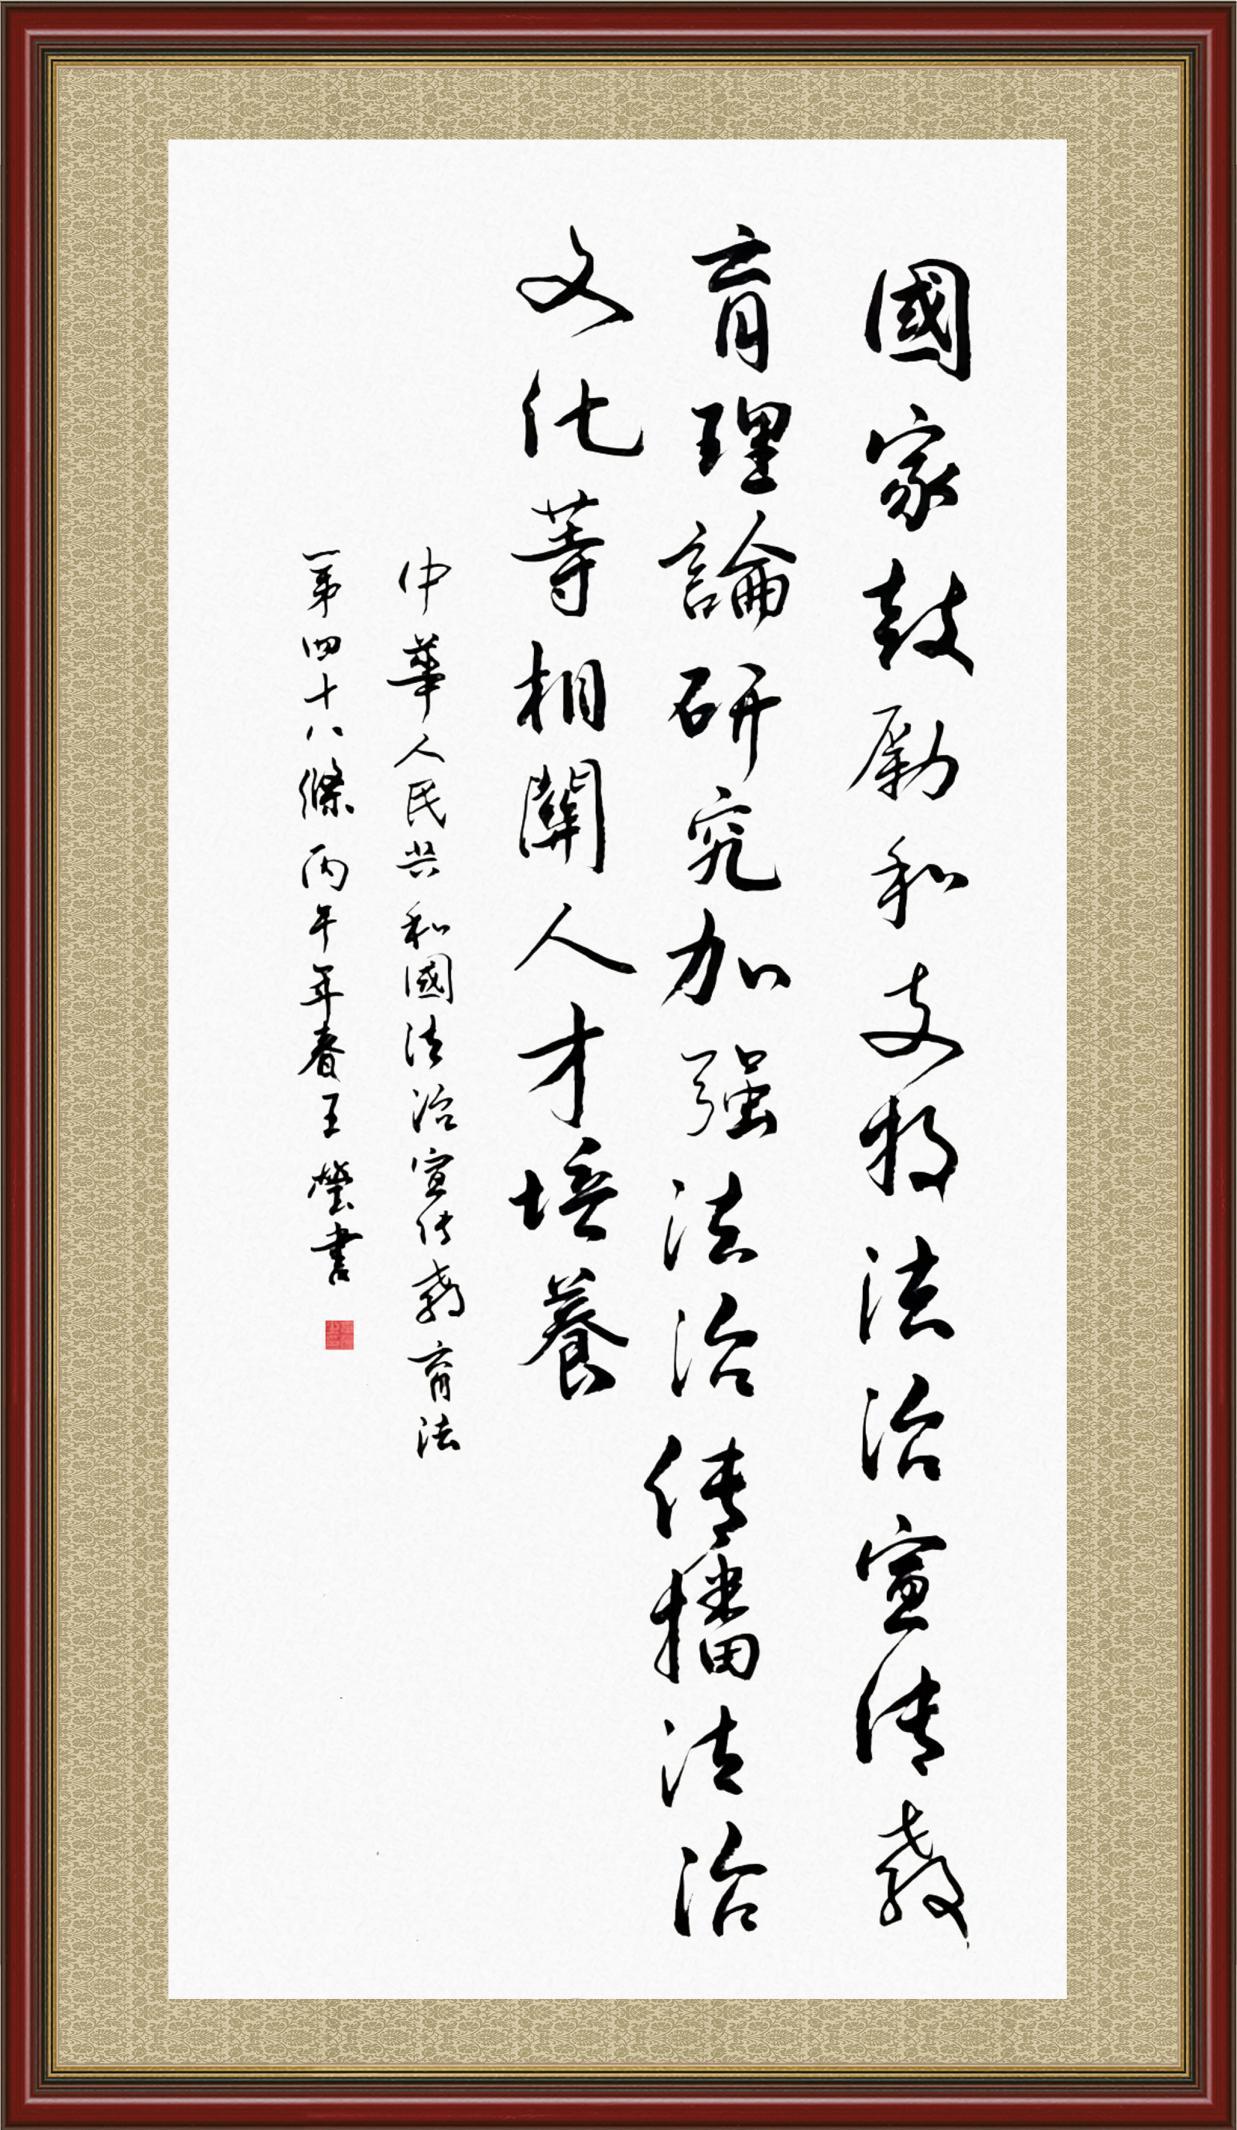 國家鼓勵和支持法治宣传教
育理論研究加强法治传播法治
文化等相關人才培養
中華人民共和國法治宣传教育法
第四十八條丙午年春王瑩書